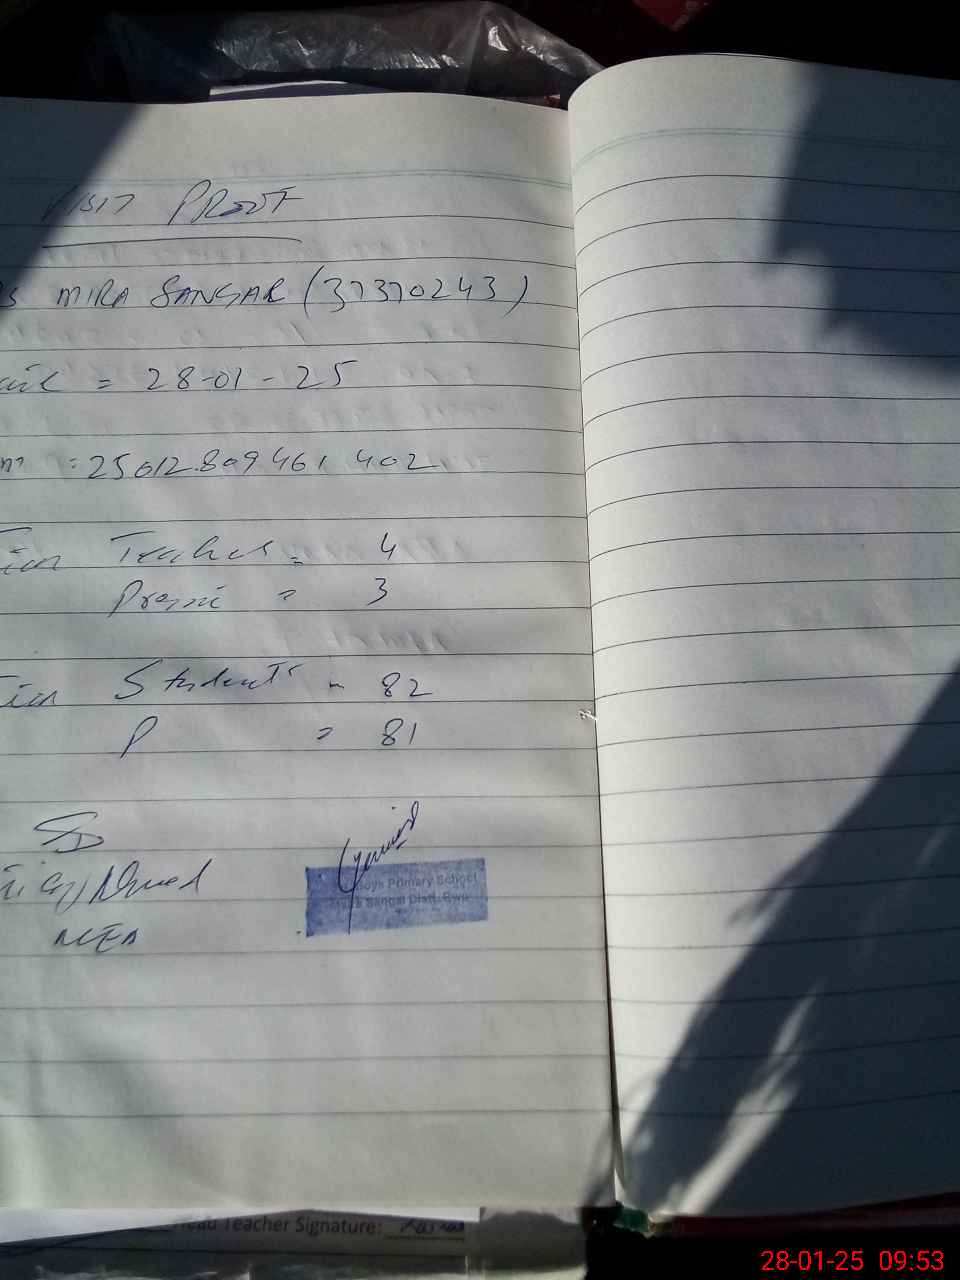 VISIT PROOF
MIRA SANGAR (37370243)
= 28-01-25
= 25012809461402
Teacher = 4
Presni = 3
Students - 82
P = 81
Ahmed
MEA
Boys Primary School
Sangar Distt:
Head Teacher Signature:
28-01-25 09:53